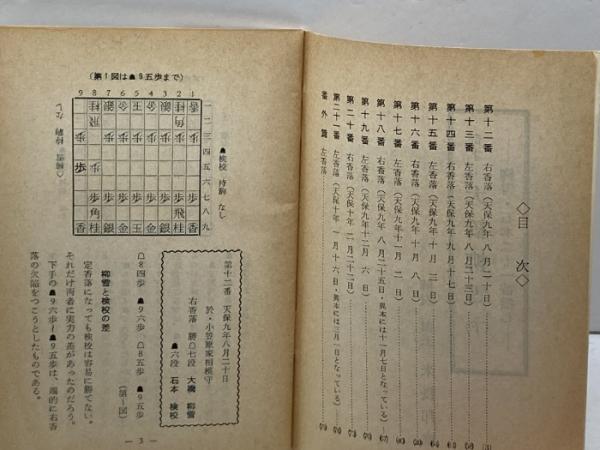 ◇目次◇
第十二番 右香落（天保九年 八月二十日）
第十三番 左香落（天保九年 八月二十三日）
第十四番 右香落（天保九年 九月十七日）
第十五番 左香落（天保九年 十月 三日）
第十六番 右香落（天保九年 十月 八日）
第十七番 左香落（天保九年 十一月 二日）
第十八番 右香落（天保九年 八月二十五日・異本には十一月七日となっている）
第十九番 左香落（天保九年 十二月 六日）
第二十番 右香落（天保十年 二月二十二日）
第二十一番 左香落（天保十年 一月十六日・異本には三月一日となっている）
番外篇 左香落
（第1図は☗9五歩まで）
9 8 7 6 5 4 3 2 1
一二三四五六七八九
☗検校 持駒 なし
☖柳雪 持駒 なし
第十二番 天保九年八月二十日
於・小笠原家相模守
右香落 勝☖七段 大橋 柳雪
☗六段 石本 検校
☖8四歩 ☗9六歩 ☖8五歩 ☗9五歩
（第1図）
柳雪と検校の差
定香落になっても検校は容易に勝てない。
それだけ両者に実力の差があったのだろう。
下手の☗9六歩〜☗9五歩は、端的に右香
落の欠陥をつこうとしたものである。
— 3 —